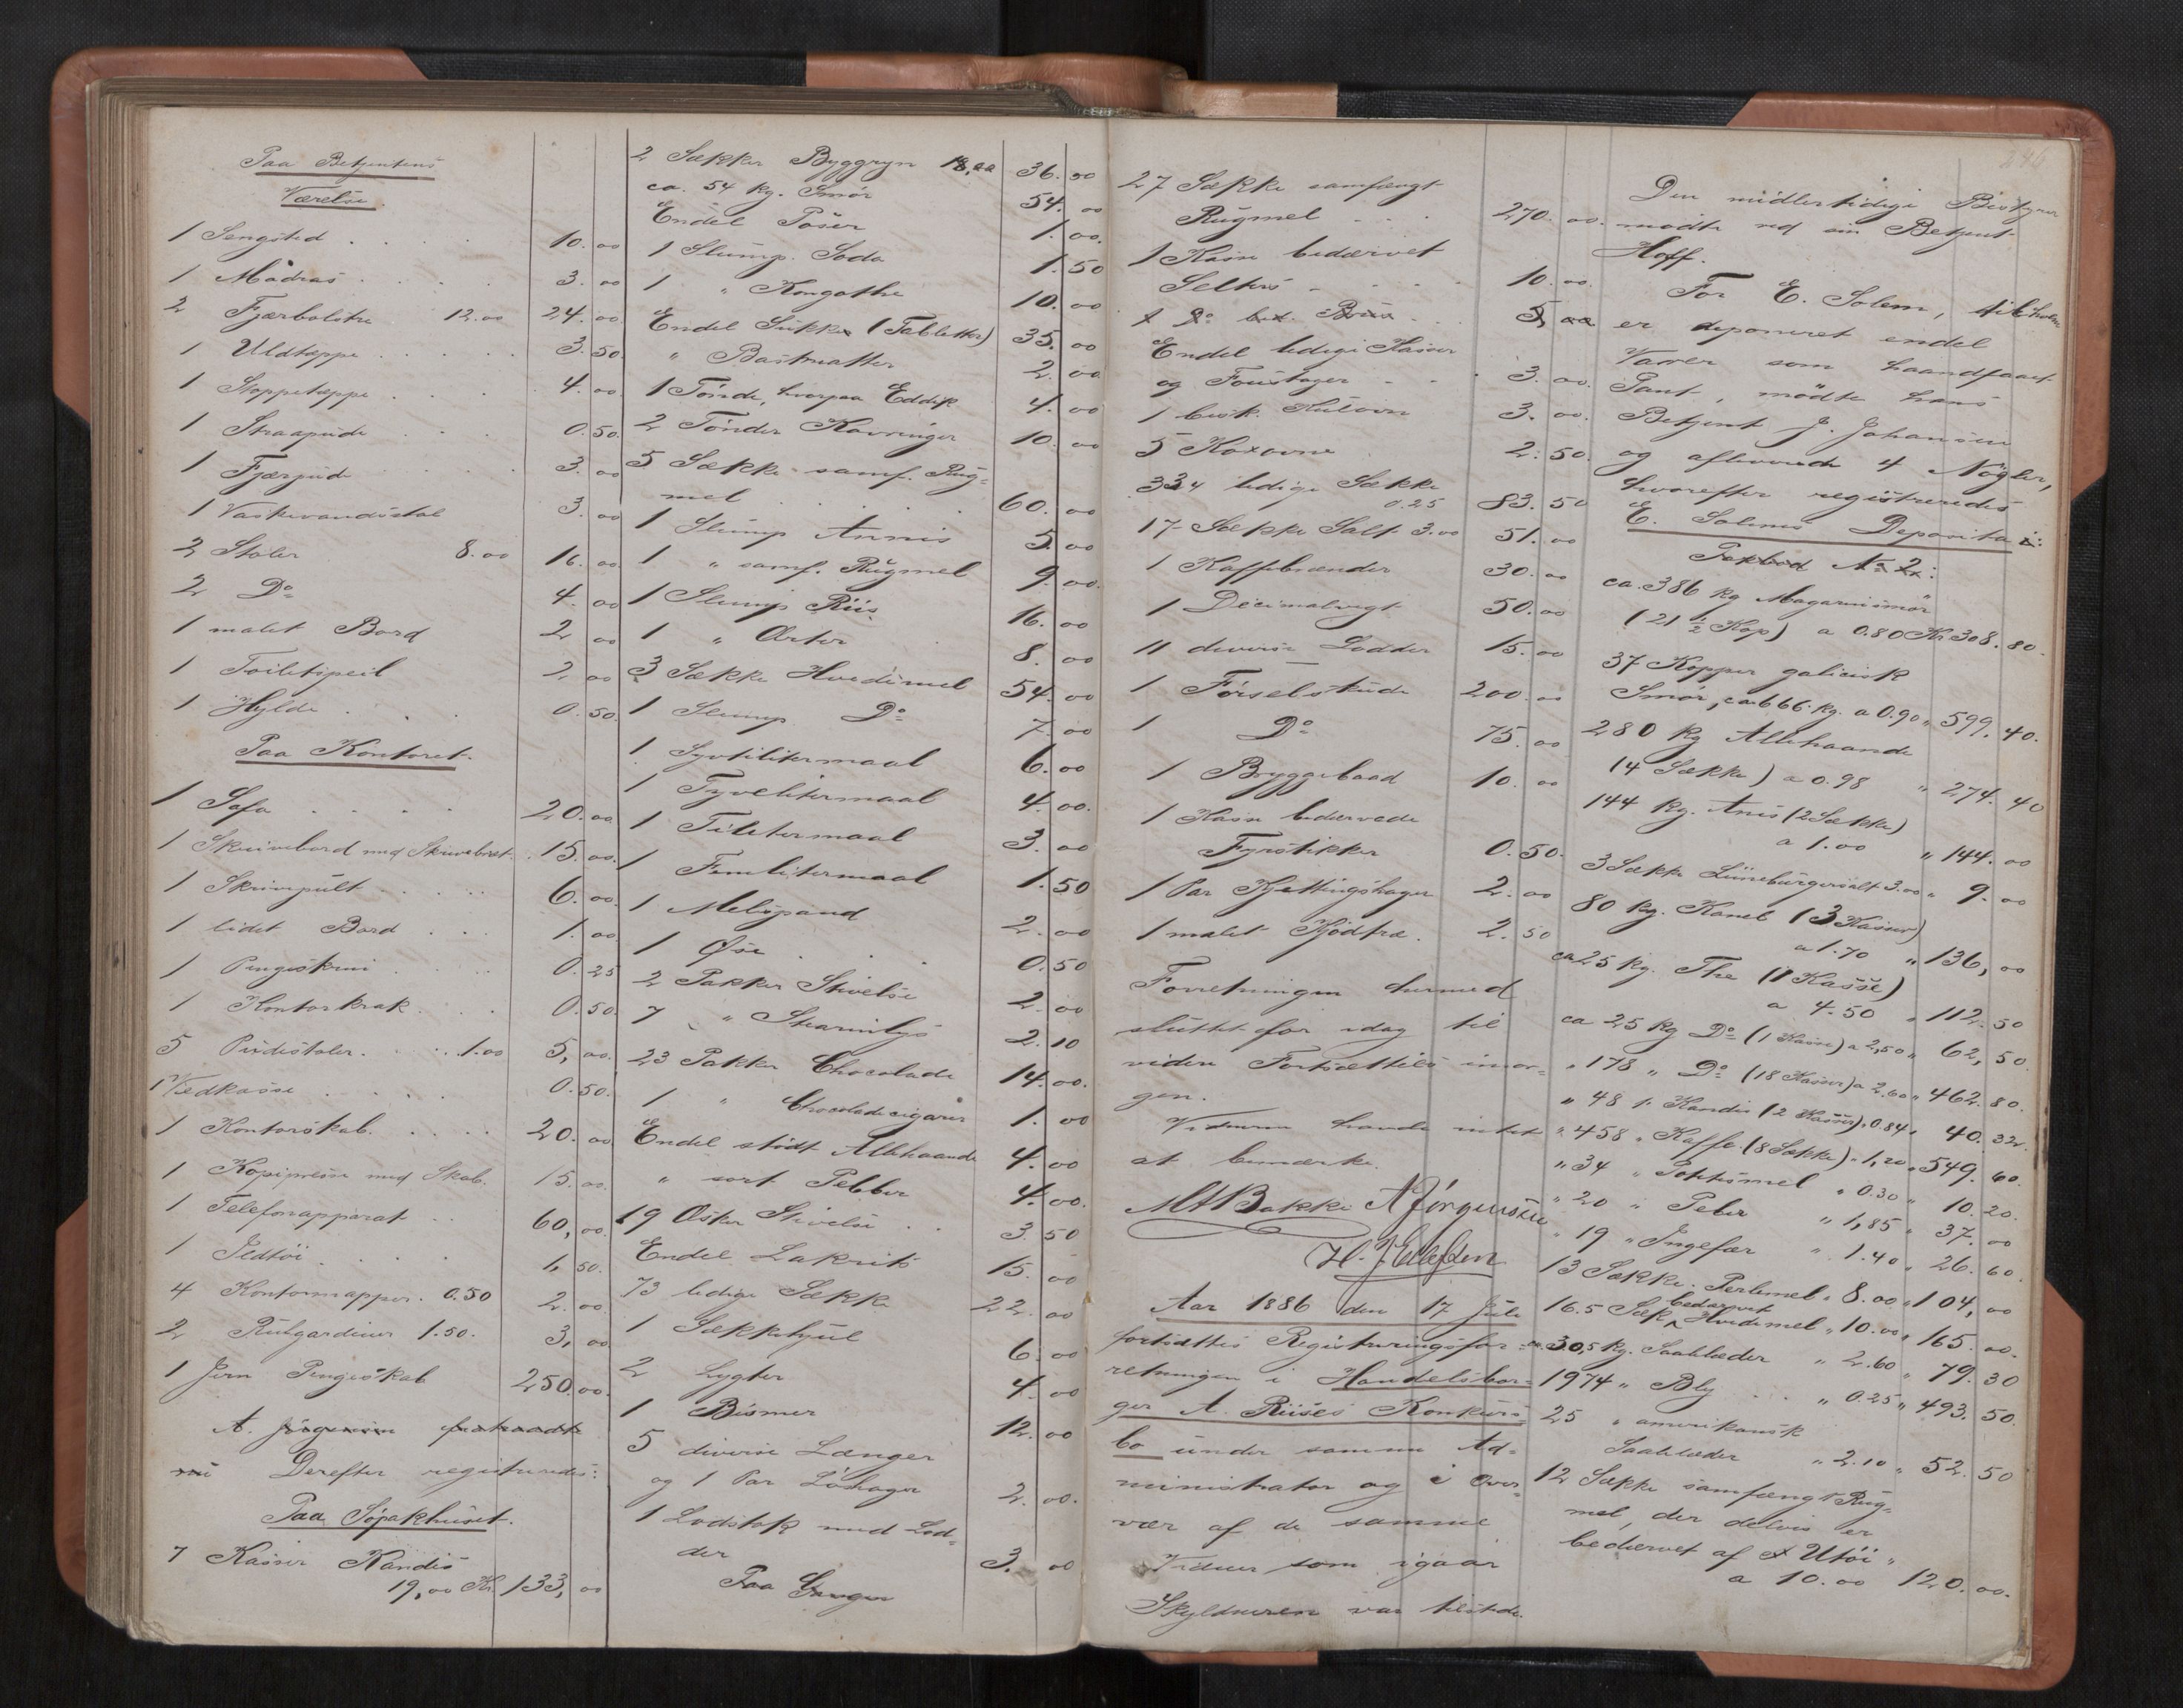 Paa Betjentens
Værelse.
1 Sengsted . . . . 10. 00
1 Madras . . . . 3. 00
2 Fjærbolstre 12.00 24. 00
1 Uldtæppe . . . . . 3. 50.
1 Stoppetæppe . . . 4. 00
1 Straapude . . . 0. 50.
1 Fjærpude . . . . 3. 00
1 Vaskevandsstol 3. 00
2 Stoler 8.00 16. 00
2 Do 4. 00
1 malet Bord 2 00
1 Toiletspeil 2 00
1 Hylde . . . 0. 50.
Paa Kontoret.
1 Sofa . . . . 20. 00
1 Skrivebord med Skrivebræt. . 15. 00.
1 Skrivepult . . . . . 6. 00.
1 lidet Bord . . . 1. 00
1 Pengeskrin . . . . 0. 25
1 Kontorkrak . . . 0. 50.
5 Pindestoler . . . . . 1.00 5, 00.
1 Vedkasse . . . . 0. 50.
1 Kontorskab . . . . 20. 00
1 Kopipresse med Skab. 15. 00.
1 Telefonapparat . . 60, 00.
1 Ildtøi . . . . 1, 50.
4 Kontormapper . 0.50 2. 00.
2 Rulgardiner 1.50. 3, 00
1 Jern Pengeskab 250. 00.
A. Jørgensen fratraadte
Derefter registreredes:
Paa Søpakhuset.
7 Kasser Kandis
19,00 Kr. 133, 00
2 Sække Byggryn 18,00 36. 00
ca. 54 kg. Smør 54. 00
Endel Poser 1. 00.
1 Slump. Soda 1. 50
1 " Kongothe 10. 00
Endel Sukker (Tabletter) 35. 00
" Bastmatter 2. 00
1 Tønde, hvorpaa Eddik 4. 00
2 Tønder Kavringer 10. 00
5 Sække samf. Rug=
mel . . . . . . 60. 00
1 Slump Annis 5. 00
1 " samf. Rugmel 9. 00.
1 Slump Riis 16. 00
1 " Ærter 8. 00
3 Sække Hvedemel 54. 00
1 Slump Do 7. 00
1 Syvtilitermaal 6. 00
1 Tyvelitermaal 4. 00.
1 Tilitermaal 3. 00
1 Femlitermaal 1. 50
1 Melspand 2. 00
1 Øse . . . 0. 50
2 Pakker Stivelse 2. 00
7 " Stearinlys 2. 10
23 Pakker Chocolade 14. 00.
1 " Chocoladecigarer 1. 00
Endel stødt Allehaande 4. 00
" sort Pebber 4. 00.
19 Æsker Stivelse . . 3. 50
Endel Lakrits 15. 00
73 ledige Sække 22. 00
1 Sækkehjul 6. 00
2 Lygter 4. 00
1 Bismer 12. 00
5 diverse Længer
og 1 Par Løhager 2. 00.
1 Lodstok med Lod=
der 3. 00
Paa Ganger
27 Sække samfængt
Rugmel . . . 270. 00.
1 Kasse bedærvet
Selters . . . . 10. 00.
1 Do bed. Brus . . 5, 00
Endel ledige Kasser
og Foustager . . . 3. 00.
1 besk. Kulovn 3. 00.
5 Koxovne 2. 50.
334 ledige Sække
0.25 83. 50
17 Sække Salt 3.00 51. 00
1 Kaffebrænder 30. 00
1 Decimalvægt 50. 00
11 diverse Lodder 15. 00
1 Førselsskude 200. 00
1 Do 75. 00
1 Bryggebaad 10. 00
1 Kasse bedærvede
Fyrstikker 0. 50.
1 Par Kjettingshager 2. 00
1 malet Kjødfad. 2. 50
Forretningen hermed
sluttet for idag til
videre Fortsættelse imor=
gen.
Vidnerne havde intet
at bemærke.
M Bakke A Jørgensen
Aar 1886 den 17 Juli
fortsattes Registreringsfor=
retningen i Handelsbor=
ger A. Riises Konkurs=
bo under samme Ad=
ministrator og i Over=
vær af de samme
Vidner som igaar
Skyldneren var tilstede.
246
Den midlertidige Bestyrer
mødte ved sin Betjent
Hoff.
For E. Solem,
er deponeret endel
Varer som haandfaaet
Pant, mødte hans
Betjent J. Johansen
og afleverede 4 Nøgler,
hvorefter registreredes
E. Solems Deposita:
Pakbod No 2:
ca. 386 kg Magarinsmør
(21 1/2 Kop) a 0.80 Kr 308. 80.
37 Kopper galicisk
Smør, ca 666 kg. a 0.90 " 599. 40.
280 kg Allehaande
(4 Sække) a 0.98 " 274. 40
144 kg. Anis (2 Sække)
a 1.00 " 144. 00
3 Sække Lüneburgersalt 3.00 " 9. 00
80 kg. Kanel (3 Kasser)
a 1.70 " 136, 00
ca 25 kg. The (1 Kasse)
a 4.50 " 112. 50
ca 25 kg Do (1 Kasse) a 2,50 " 62, 50.
" 178 " Do (18 Kasser) a 2.60 " 462. 80.
" 48 " Kandis (2 Kasser) " 0.84 " 40. 32.
" 458 " Kaffe (8 Sække) " 1,20 " 549. 60.
" 34 " Potetsmel " 0.30 " 10. 20.
" 20 " Peber " 1,85 " 37. 00
" 19 " Ingefær " 1.40 " 26. 60.
13 Sække Perlemel " 8.00 " 104, 00
bedærvet
16.5 Sæk Hvedemel " 10.00 " 165. 00.
ca. 30,5 kg. Saalelæder " 2.60 " 79. 30
1974 " Bly . . . " 0.25 " 493. 50.
25 " amerikansk
Saalelæder " 2.10 " 52. 50
12 Sække samfængt Rug=
mel, der delvis er
bedærvet af Utøi "
a 10.00 120. 00.